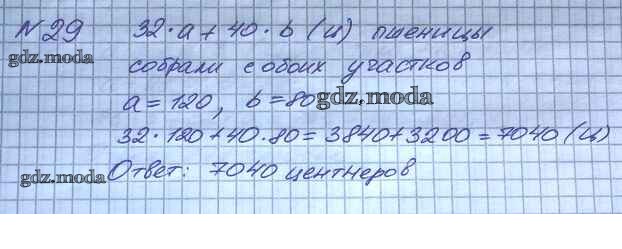 №29 32·a + 40·b (ц) пшеницы
gdz.moda
собрали с обоих участков
a = 120, b = 80 gdz.moda
32·120+40·80 = 3840+3200 = 7040 (ц)
gdz.moda Ответ: 7040 центнеров